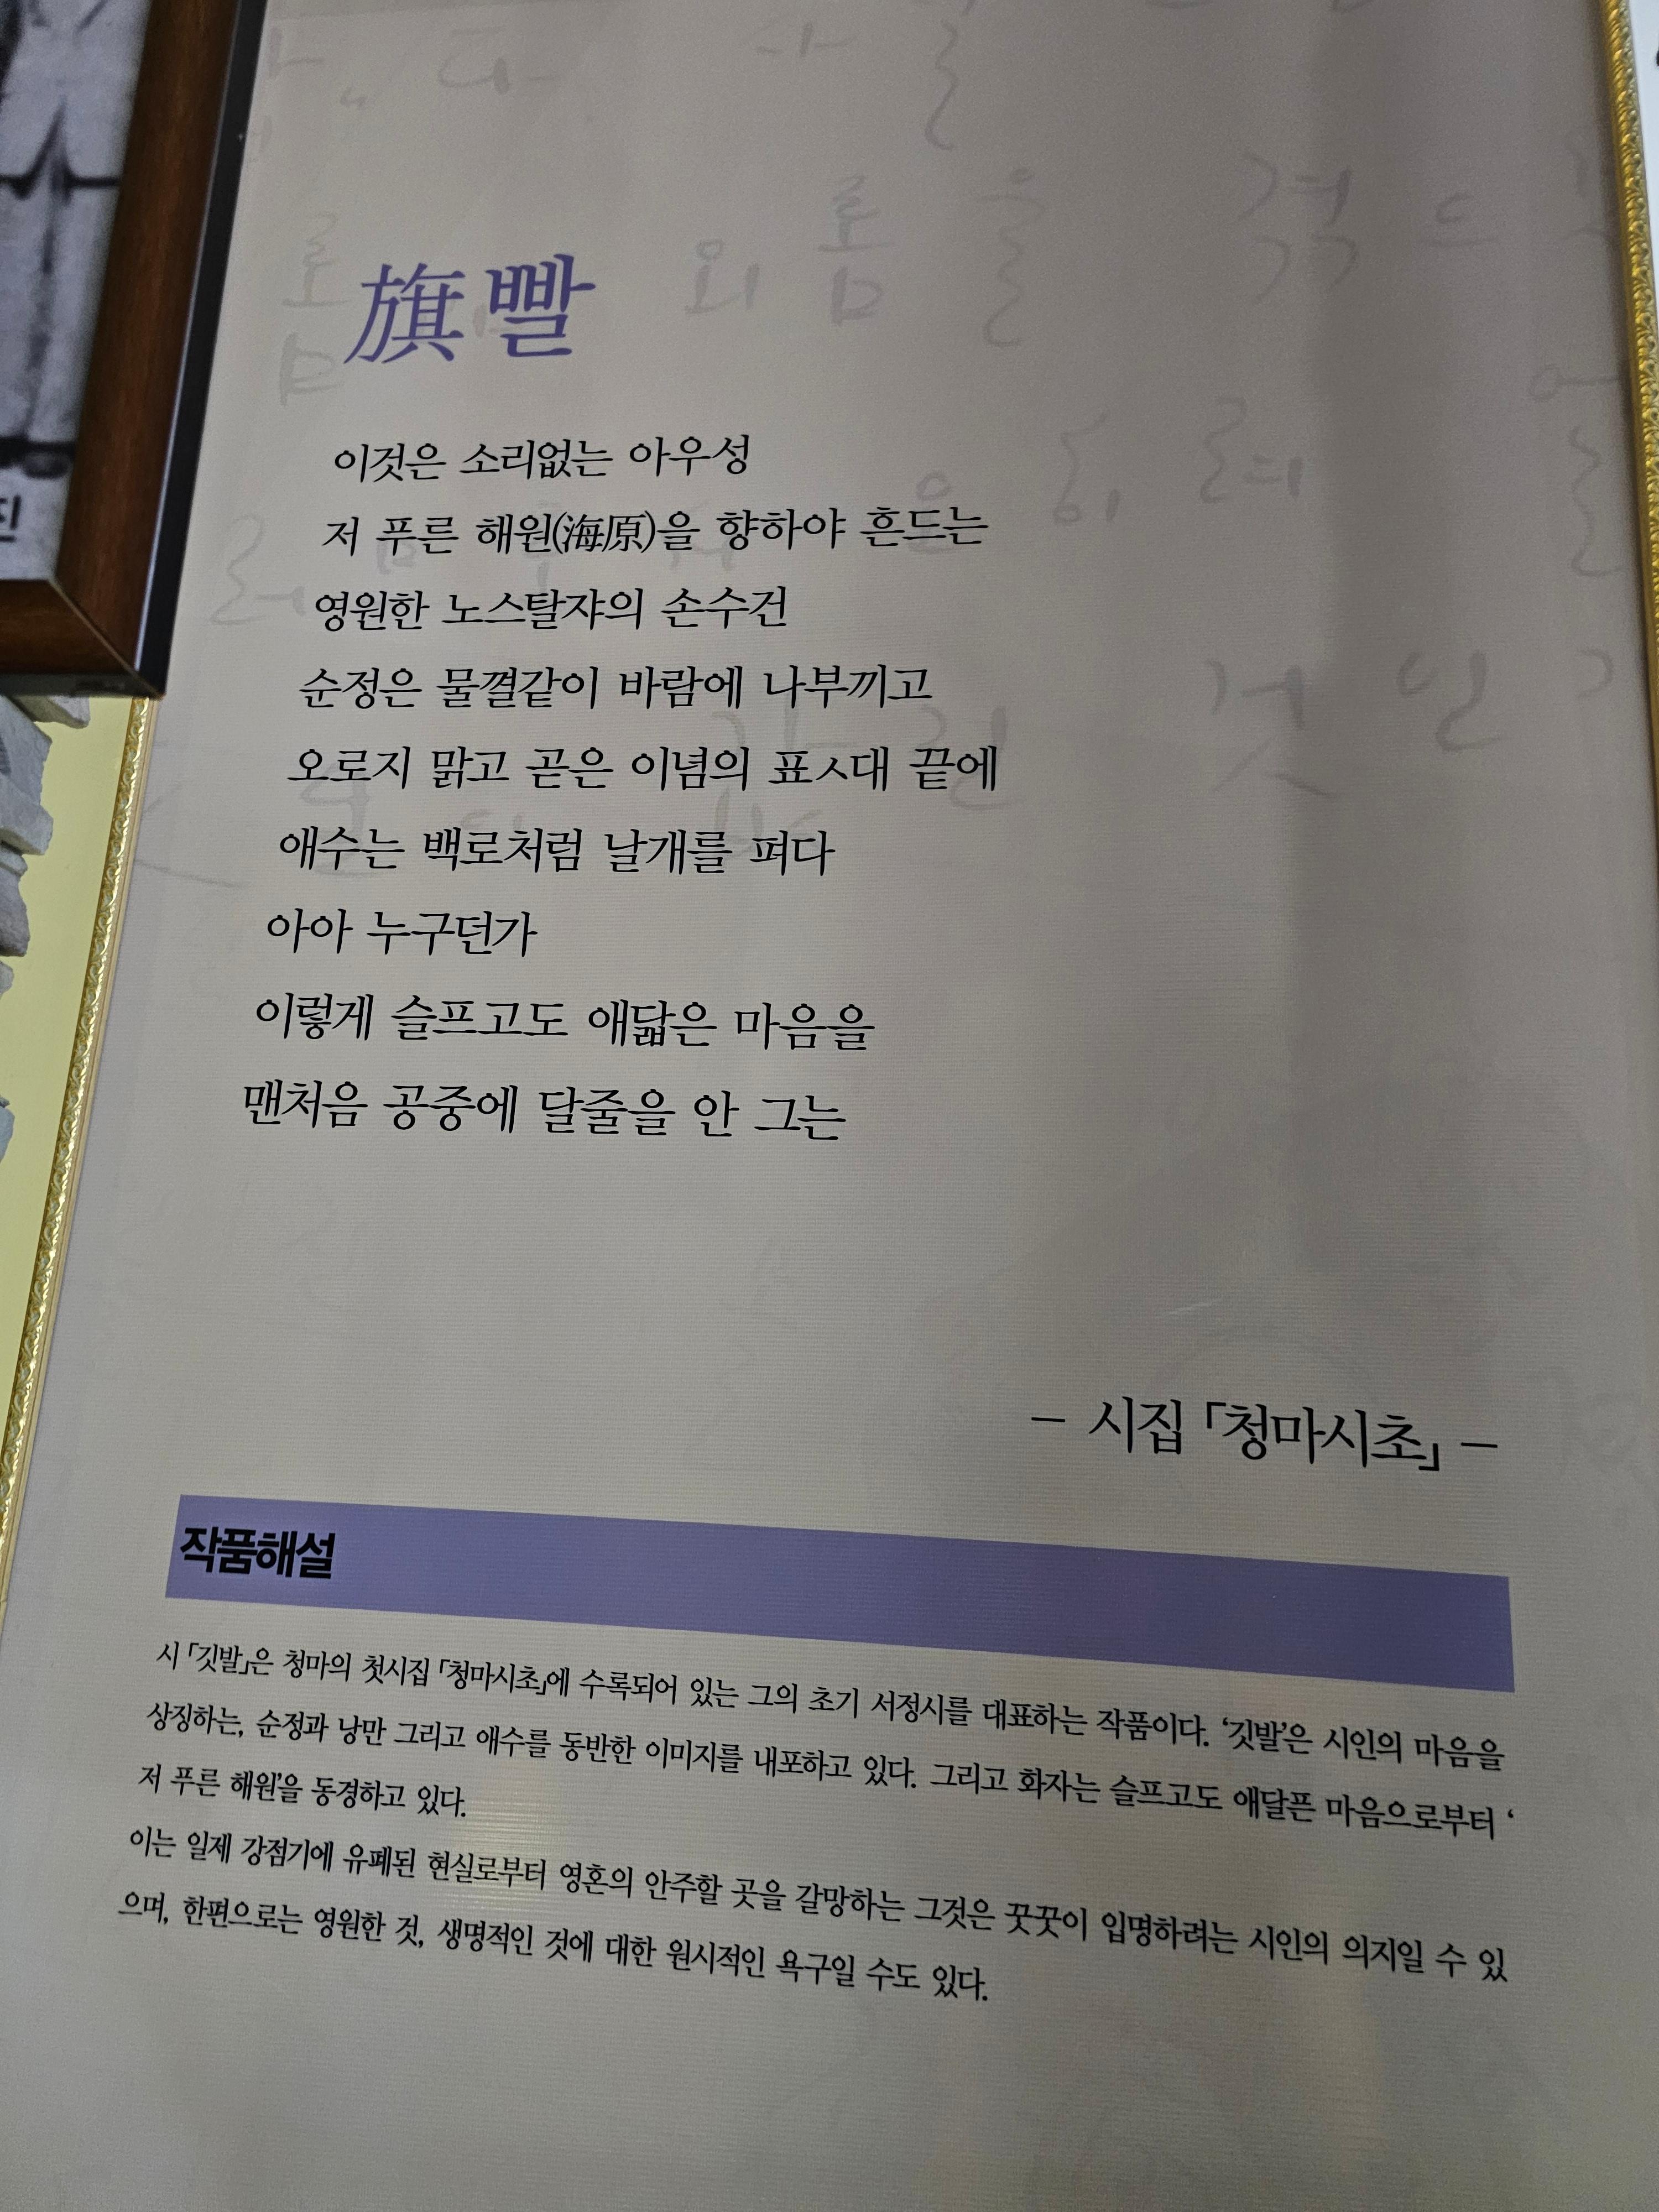 진
旗빨
이것은 소리없는 아우성
저 푸른 해원(海原)을 향하야 흔드는
영원한 노스탈쟈의 손수건
순정은 물꼍같이 바람에 나부끼고
오로지 맑고 곧은 이념의 표ㅅ대 끝에
애수는 백로처럼 날개를 펴다
아아 누구던가
이렇게 슬프고도 애닯은 마음을
맨처음 공중에 달줄을 안 그는
– 시집 「청마시초」 –
작품해설
시 「깃발」은 청마의 첫시집 「청마시초」에 수록되어 있는 그의 초기 서정시를 대표하는 작품이다. ‘깃발’은 시인의 마음을
상징하는, 순정과 낭만 그리고 애수를 동반한 이미지를 내포하고 있다. 그리고 화자는 슬프고도 애달픈 마음으로부터 ‘
저 푸른 해원’을 동경하고 있다.
이는 일제 강점기에 유폐된 현실로부터 영혼의 안주할 곳을 갈망하는 그것은 꿋꿋이 입명하려는 시인의 의지일 수 있
으며, 한편으로는 영원한 것, 생명적인 것에 대한 원시적인 욕구일 수도 있다.